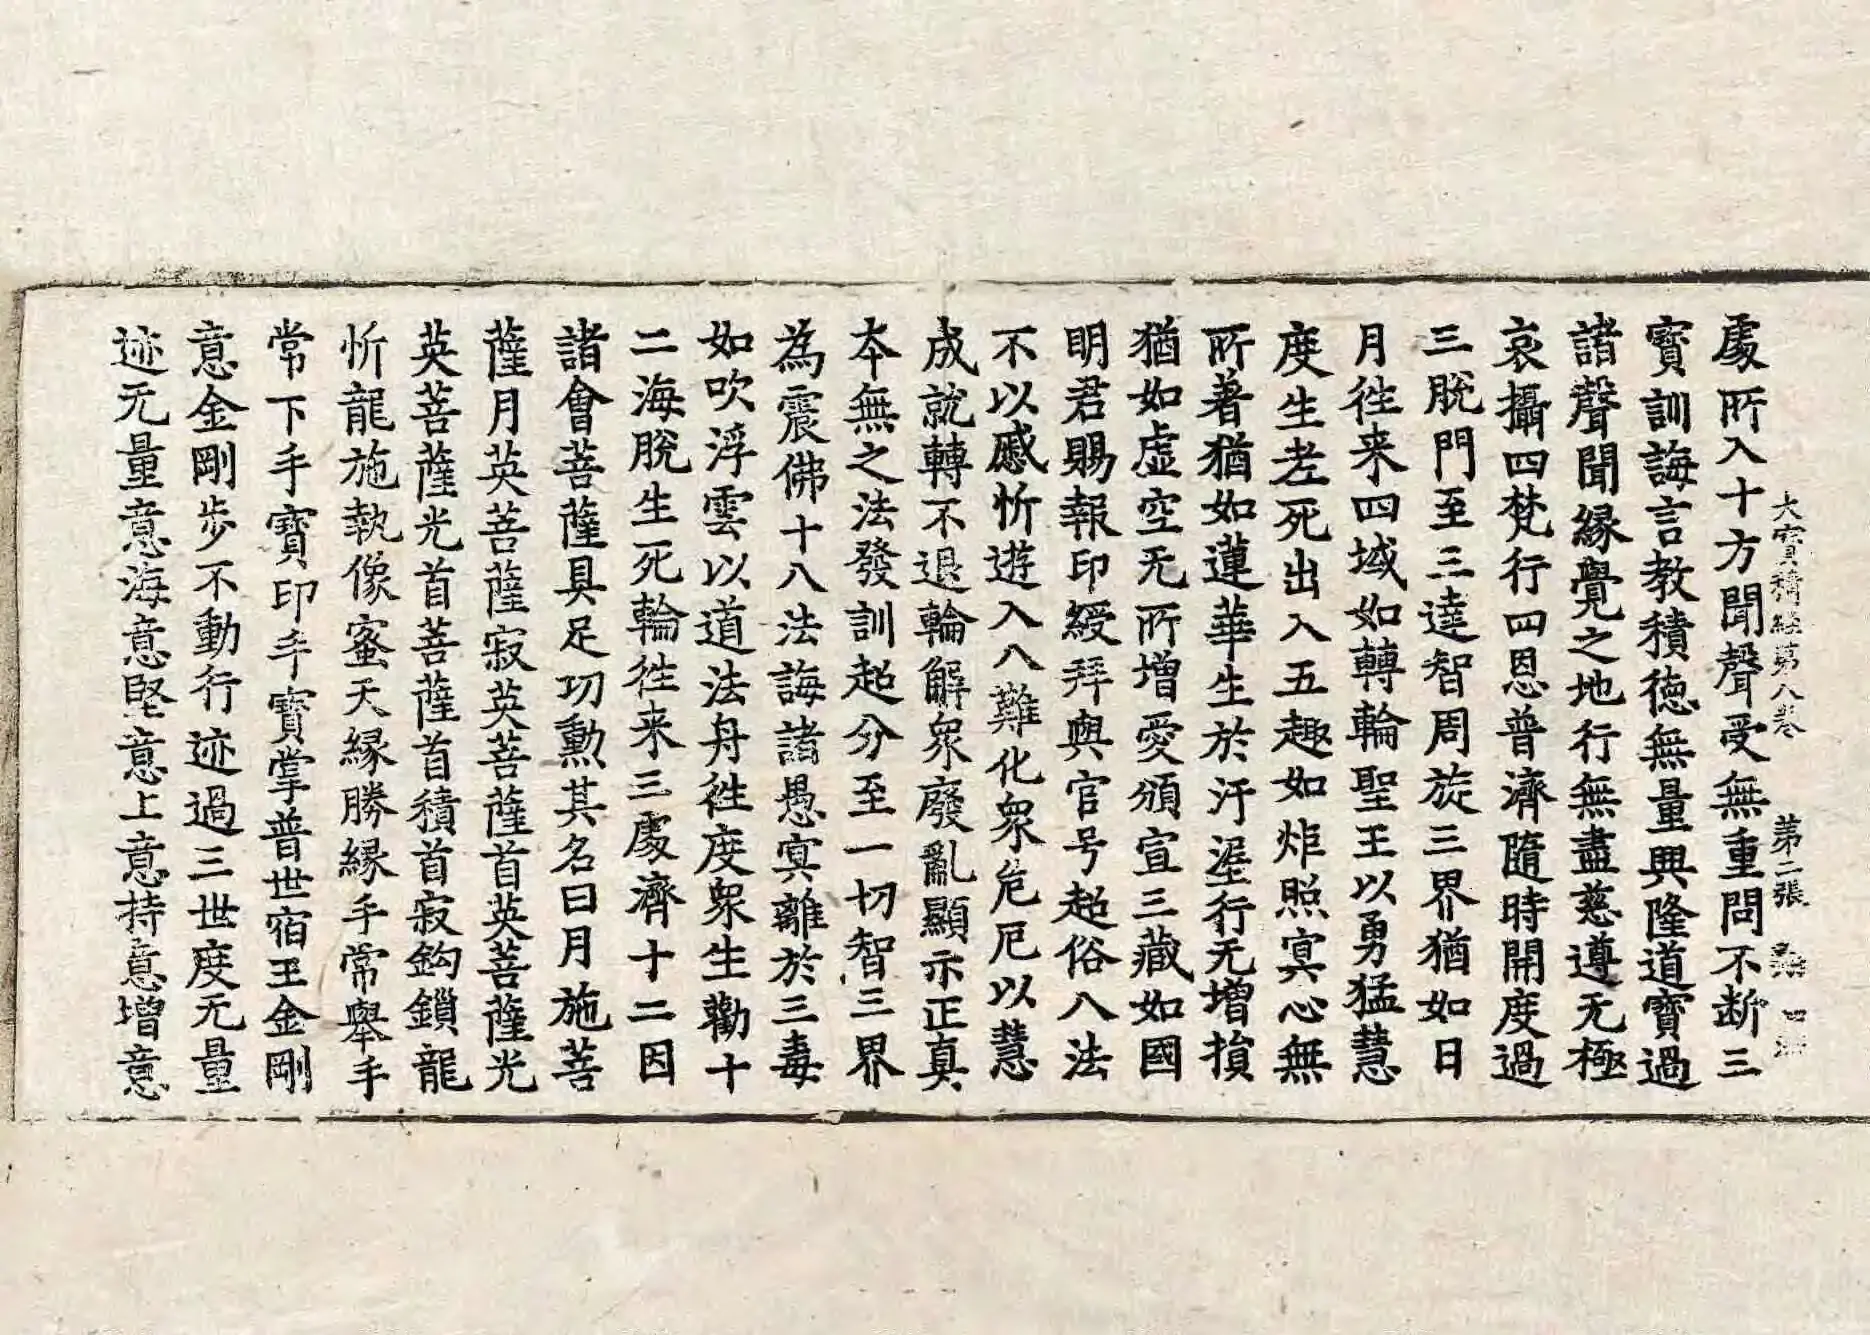 大寶積經第八卷 第二張
處所入十方聞聲受無重問不断三
寳訓誨言教積德無量興隆道寳過
諸聲聞縁覺之地行無盡慈遵无極
哀攝四梵行四恩普濟隨時開度過
三脫門至三達智周旋三界猶如日
月往来四域如轉輪聖王以勇猛慧
度生老死出入五趣如炬照冥心無
所著猶如蓮華生於汙埿行无增損
猶如虛空无所增愛頒宣三藏如國
明君賜報印綬拜與官号超俗八法
不以慼忻遊入八難化衆危厄以慧
成就轉不退輪解衆廢亂顯示正真
本無之法發訓超分至一切智三界
為震佛十八法誨諸愚冥離於三毒
如吹浮雲以道法舟往度衆生勸十
二海脫生死輪往来三處濟十二因
諸會菩薩具足功勲其名曰月施菩
薩月英菩薩寂英菩薩首英菩薩光
英菩薩光首菩薩首積首寂鈎鎖龍
忻龍施執像蜜天縁勝縁手常舉手
常下手寳印手寳掌普世宿王金剛
意金剛步不動行迹過三世度无量
迹无量意海意堅意上意持意增意